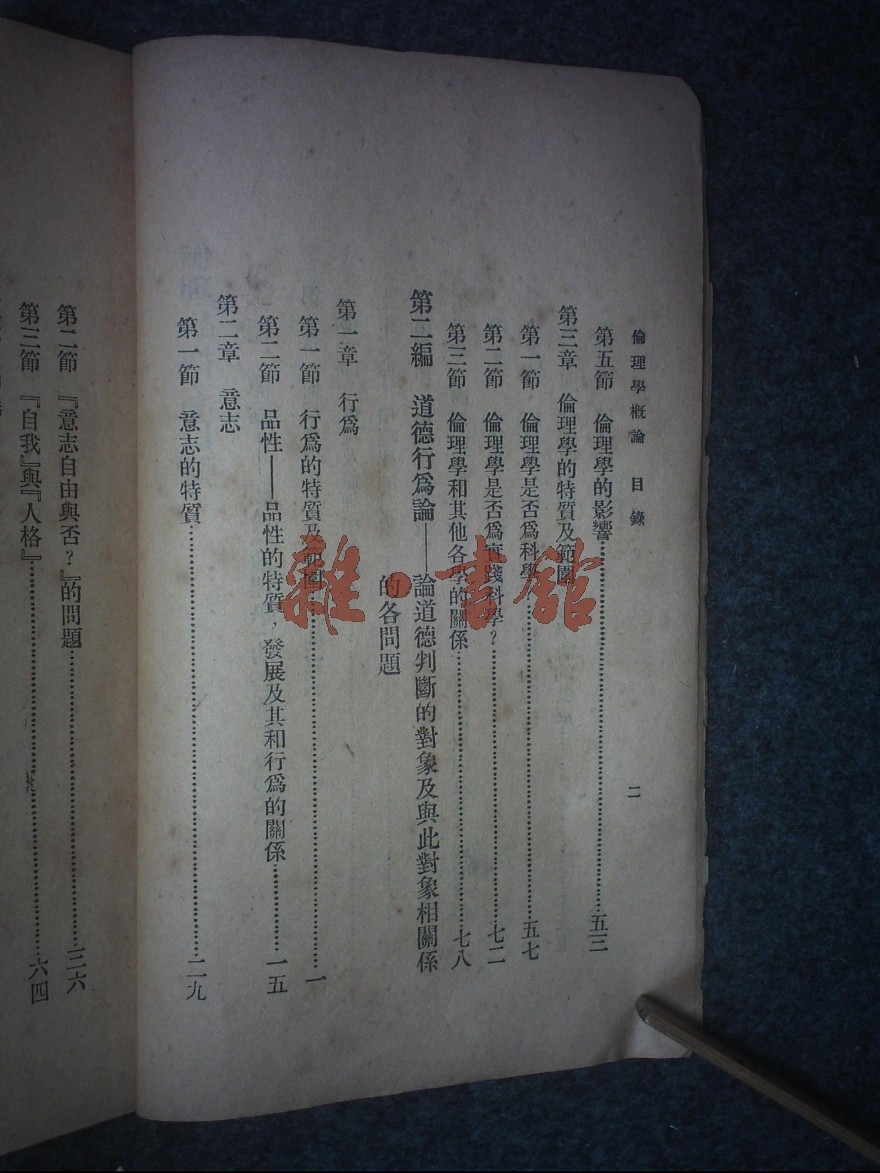 倫理學概論 目錄 二
第五節 倫理學的影響……五三
第三章 倫理學的特質及範圍
第一節 倫理學是否爲科學……五七
第二節 倫理學是否爲實踐科學？……七二
第三節 倫理學和其他各學的關係……七八
第二編 道德行爲論——論道德判斷的對象及與此對象相關係
的各問題
第一章 行爲
第一節 行爲的特質及範圍……一
第二節 品性——品性的特質，發展及其和行爲的關係……一五
第二章 意志
第一節 意志的特質……二九
第二節 『意志自由與否？』的問題……三六
第三節 『自我』與『人格』……六四
雜·書館